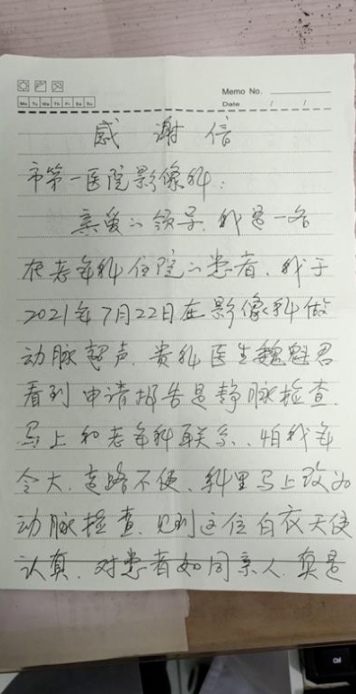 Memo No.
Mo Tu We Th Fr Sa Su
Date / /
感谢信
市第一医院影像科：
亲爱的领导，我是一名
在老年科住院的患者，我于
2021年7月22日在影像科做
动脉超声，贵科医生魏魁君
看到申请报告是静脉检查，
马上和老年科联系，怕我年
令大，走路不便，科里马上改为
动脉检查，见到这位白衣天使
认真，对患者如同亲人，真是